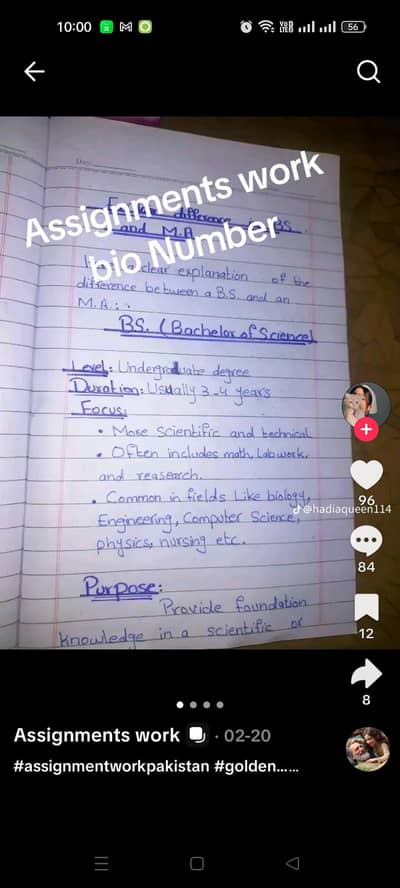 10:00
VoD
LTE
56
Day:
difference BS.
and M.A
Assignments work
bio Number
clear explanation of the
difference between a B.S. and an
M.A.:
BS. (Bachelor of Science)
Level: Undergraduate degree
Duration: Usually 3-4 years
Focus:
• More scientific and technical
• Often includes math, Labwork,
and reasearch.
• Common in fields Like biology,
Engineering, Computer Science,
physics, nursing etc.
Purpose:
Provide foundation
knowledge in a scientific or
96
@hadiaqueen114
84
12
8
Assignments work · 02-20
#assignmentworkpakistan #golden......